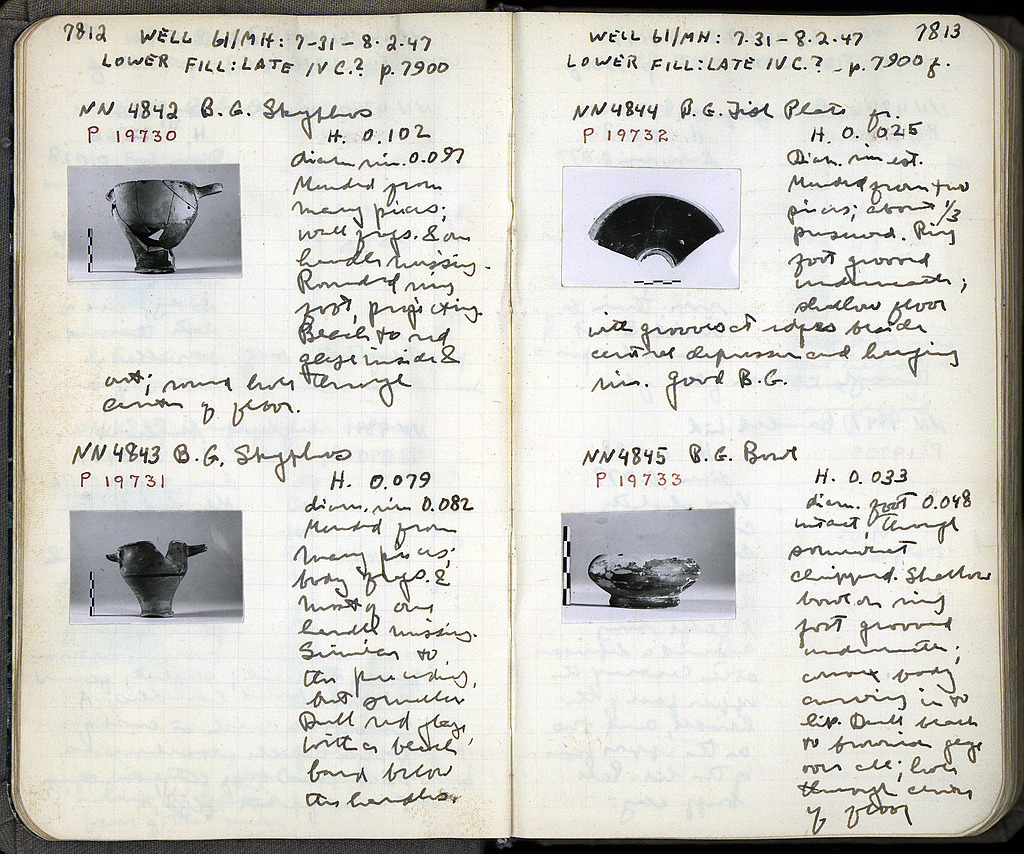 7812 WELL 61/MH: 7-31-8.2.47
LOWER FILL: LATE IV C.? p. 7900
NN 4842 B.G. Skyphos
P 19730 H. 0.102
diam. rim 0.097
Mended from
many pieces;
wall frgs. & one
handle missing.
Rounded ring
foot, projecting.
Black to red
glaze inside &
out; round hole through
center of floor.
NN 4843 B.G. Skyphos
P 19731 H. 0.079
diam. rim 0.082
Mended from
many pieces;
body frgs. &
most of one
handle missing.
Similar to
the preceding,
but smaller
Dull red glaze,
with a black
band below
the handles.
WELL 61/MH: 7.31-8.2.47 7813
LOWER FILL: LATE IV C.? - p. 7900 f.
NN 4844 B.G. Fish Plate fr.
P 19732 H. 0.025
Diam. rim est.
Mended from two
pieces; about 1/3
preserved. Ring
foot grooved
underneath;
shallow floor
with grooves at edges beside
central depression and hanging
rim. Good B.G.
NN 4845 B.G. Bowl
P 19733 H. 0.033
diam. foot 0.048
Intact though
somewhat
chipped. Shallow
bowl on ring
foot grooved
underneath;
convex body
curving in to
lip. Dull black
to brownish glaze
over all; hole
through center
of floor